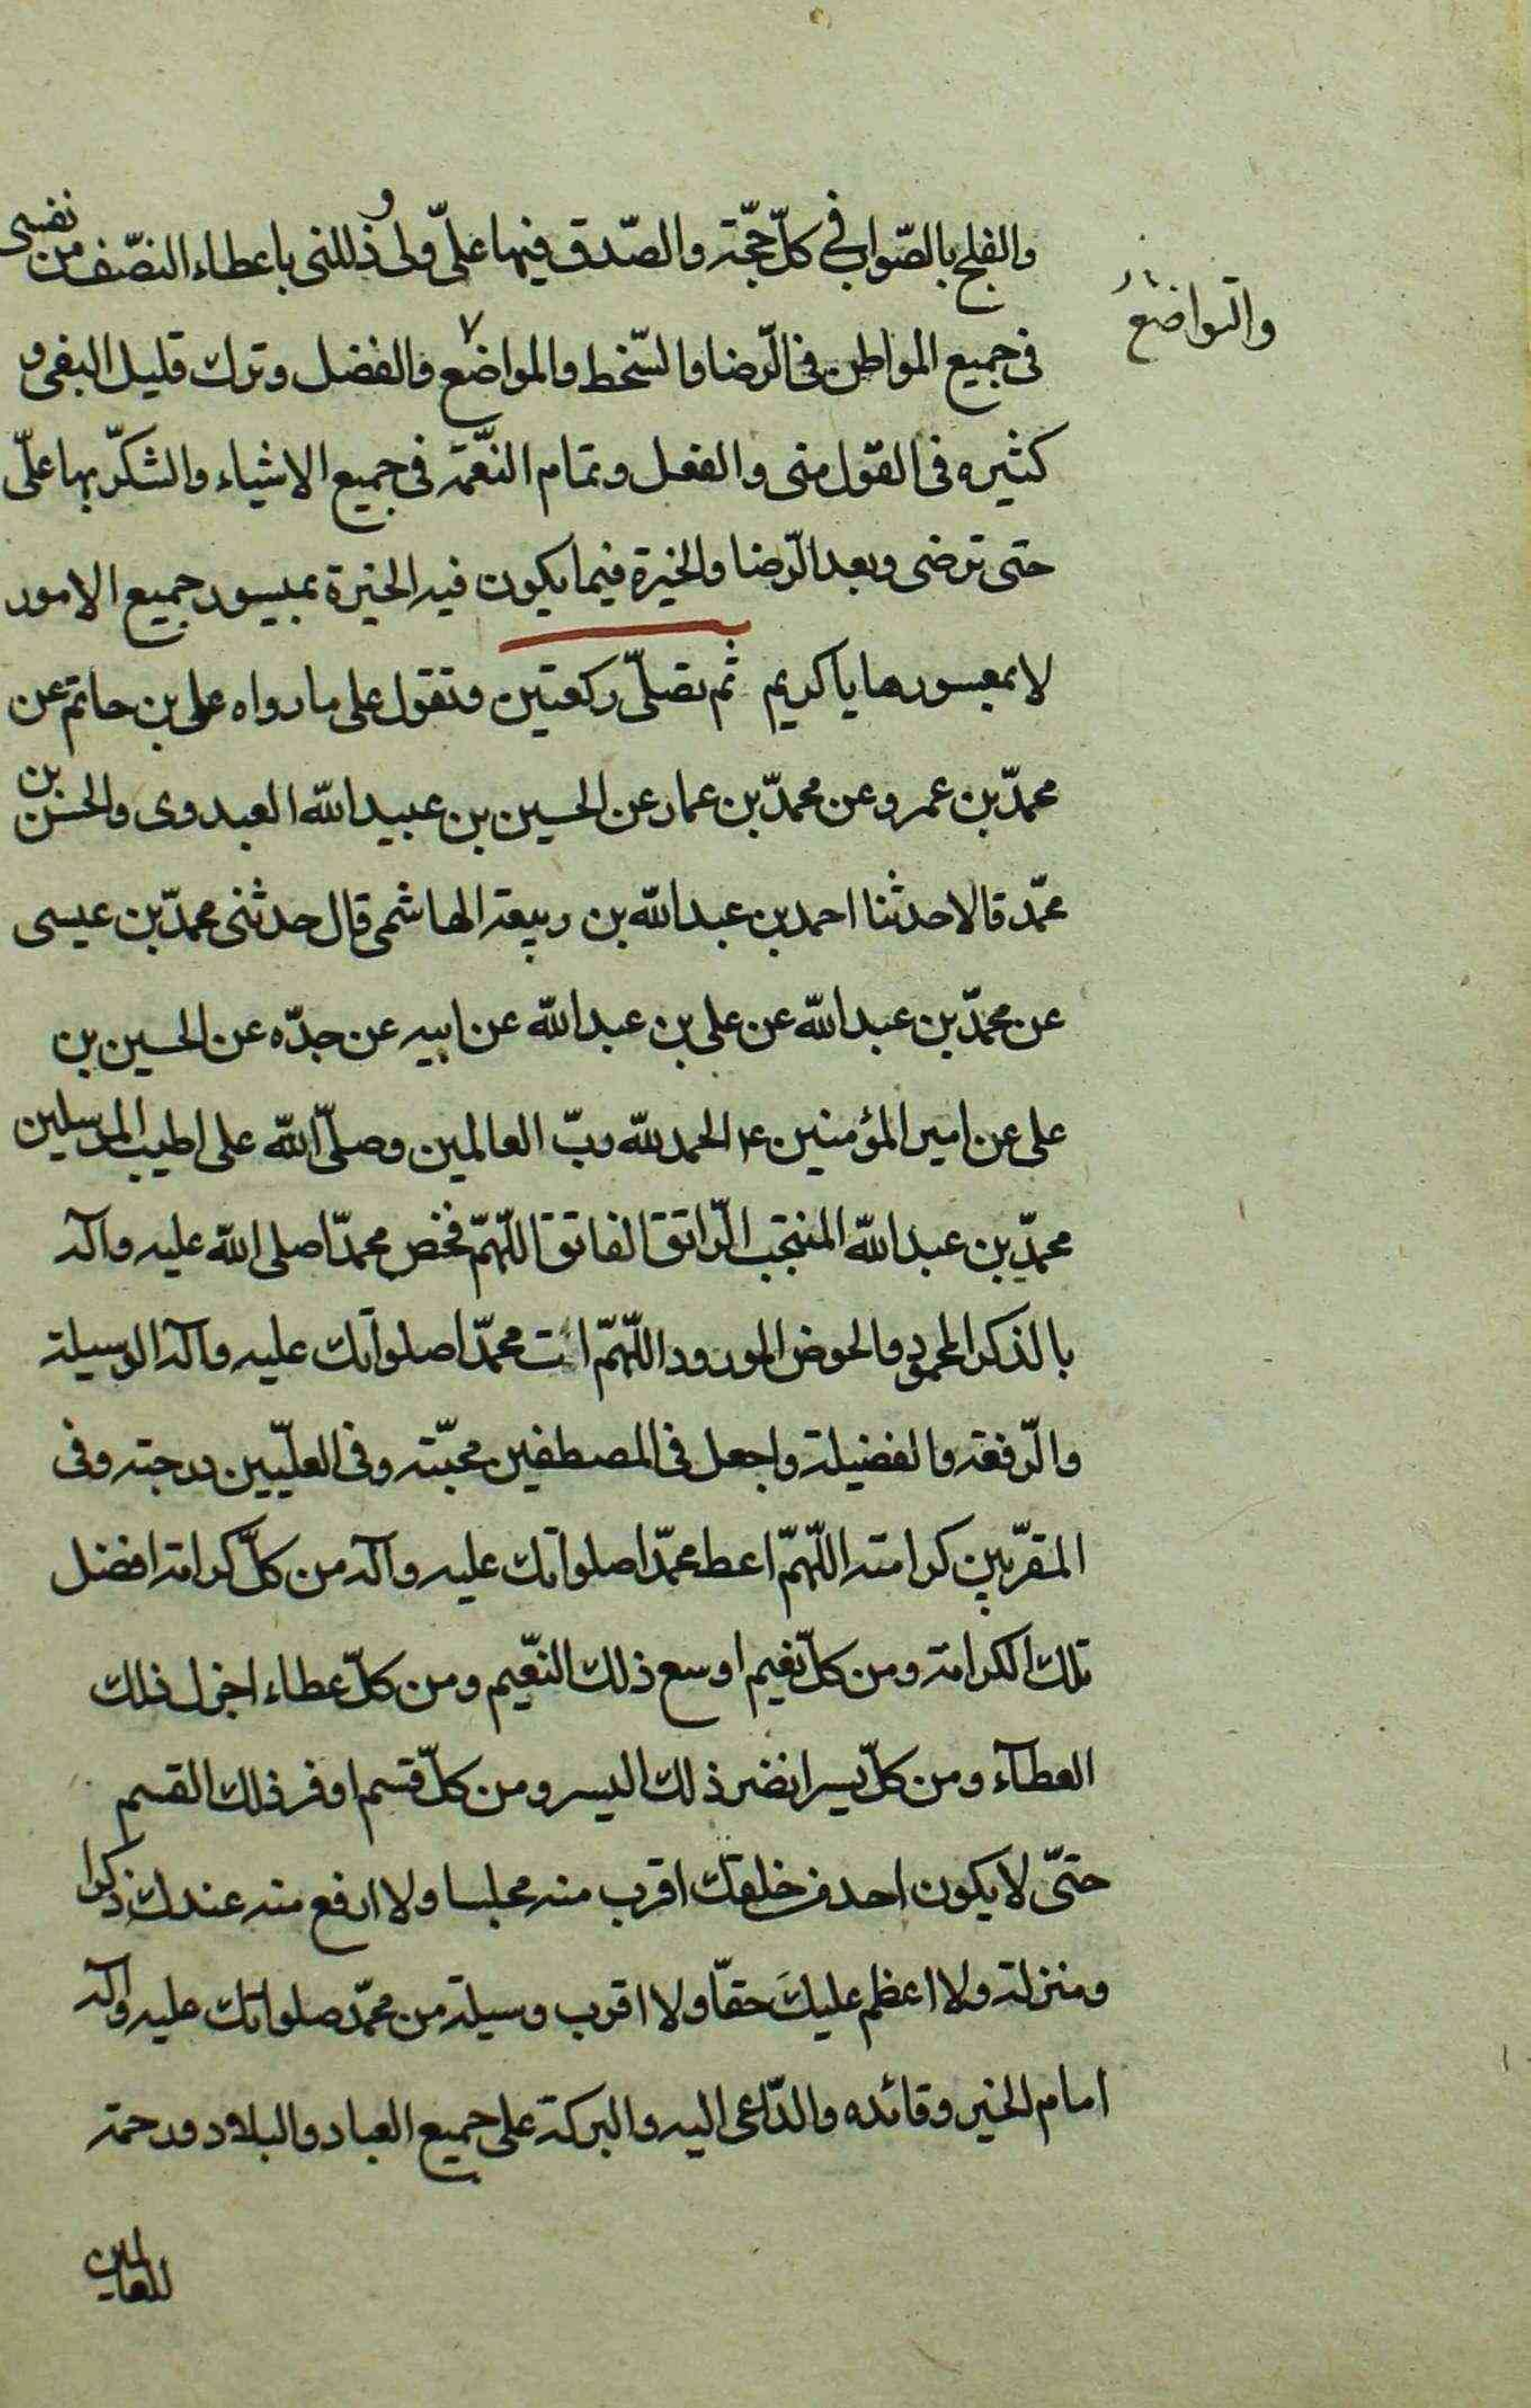 والفلج بالصّواب في كلّ حجّة والصّدق فيها علىّ ولى و ذللنى باعطاء النصّف من نفسى
والتواضع
فى جميع المواطن فى الرّضا والسّخط والمواضع والفضل وترك قليل البغى و
كثيره فى القول منى والفعل وتمام النّعمة فى جميع الاشياء والشكر بها علىّ
حتى ترضى وبعد الرّضا والخيرة فيما يكون فيه الخيرة بميسور جميع الامور
لا بمعسورها يا كريم ثم تصلّى ركعتين وتقول على ما رواه على بن حاتم عن
محمّد بن عمرو عن محمّد بن عمار عن الحسين بن عبيد الله العبدوى والحسن بن
محمّد قالا حدثنا احمد بن عبد الله بن ربيعة الهاشمى قال حدثنى محمّد بن عيسى
عن محمّد بن عبد الله عن على بن عبد الله عن ابيه عن جدّه عن الحسين بن
على عن امير المؤمنين ع الحمد لله ربّ العالمين وصلّى الله على اطيب المرسلين
محمّد بن عبد الله المنتجب الرّاتق الفاتق اللّهمّ فخص محمّدا صلى الله عليه وآله
بالذكر المحمود والحوض المورود اللّهمّ ائت محمّدا صلواتك عليه وآله الوسيلة
والرّفعة والفضيلة واجعل فى المصطفين محبّته وفى العليّين درجته وفى
المقرّبين كرامته اللّهمّ اعط محمّدا صلواتك عليه وآله من كلّ كرامة افضل
تلك الكرامة ومن كلّ نعيم اوسع ذلك النّعيم ومن كلّ عطاء اجزل ذلك
العطآء ومن كلّ يسر انضر ذلك اليسر ومن كلّ قسم اوفر ذلك القسم
حتّى لا يكون احد من خلقك اقرب منه مجلسا ولا ارفع منه عندك ذكرا
ومنزلة ولا اعظم عليك حقّا ولا اقرب وسيلة من محمّد صلواتك عليه وآله
امام الخير وقائده والدّاعى اليه والبركة على جميع العباد والبلاد ورحمة
للعالمين